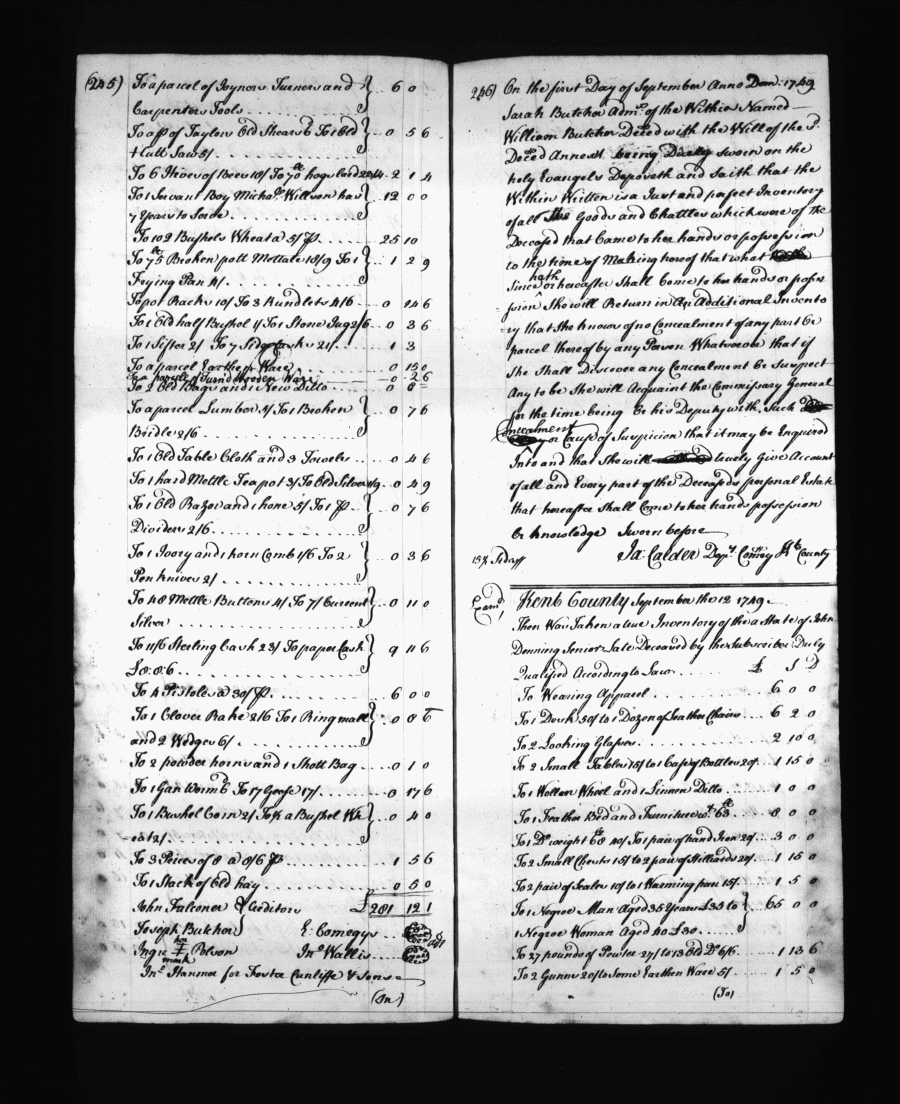 (245) To a parcel of Joyners Turners and } 6 0
Carpenters Tools
To a pr of Taylors Old Shears 6 To 1 Old } 0 5 6
+ Cutt Saw 5/
To 6 Hives of Bees 10/ To 70 lb hogs lard 2 1 4
To 1 Servant Boy Michal. Willson has } 12 0 0
7 Years to Serve
To 102 Bushels Wheat a 5/ P 25 10
To 75 lb Broken pott Mettale 18/9 To 1 } 1 2 9
Frying Pan 4/
To pot Racks 10/ To 3 Rundlets 4/6 0 14 6
To 1 Old half Bushel 1/ To 1 Stone Jug 2/6 0 3 6
To 1 Sifter 2/ To 7 Sydr Casks 21/ 1 3
To a parcel Earthen Ware 0 15 0
To a parcele of Turnd Wooden Ware 0 2 6
To 2 Old Bags and 1 New Ditto 0 6
To a parcel Lumber 5/ To 1 Broken } 0 7 6
Bridle 2/6
To 1 Old Table Cloth and 3 Towels 0 4 6
To 1 hard Mettle Teapot 3/ To Old Silver 1/9 0 4 9
To 1 Old Razor and 1 hone 5/ To 1 P } 0 7 6
Dividers 2/6
To 1 Ivory and 1 horn Comb 1/6 To 2 } 0 3 6
Penknives 2/
To 48 Mettle Buttons 4/ To 7/ Current } 0 11 0
Silver
To 11/6 Sterling Cash 23/ To paper Cash } 9 11 6
£8:8:6
To 4 Pistoles a 30/ P 6 0 0
To 1 Clover Rake 2/6 To 1 Ring mall } 0 8 6
and 2 Wedges 6/
To 2 powder horns and 1 Shott Bag 0 1 0
To 1 Gun Worm 6 To 17 Geese 17/ 0 17 6
To 1 Bushel Corn 2/ To ½ a Bushel Wh } 0 4 0
eat 2/
To 3 Peices of 8 a 8/6 P 1 5 6
To 1 Stack of Old hay 0 5 0
John Falconer } Creditors £281 12 1
Joseph Butcher E. Comegys
Ingre her I mark Polson Jno Wallis
Jno Hanmer for Foster Cunliffe & Sons
(On)
246) On the first Day of September Anno Dom: 1749
Sarah Butcher Admx of the Within Named
William Butcher Deced with the Will of the sd
Deced Annext being Duely sworn on the
holy Evangels Deposeth and Saith that the
Within Written is a Just and perfect Inventory
of all the Goods and Chattles which were of the
Deceased that Came to her hands or possession
to the time of Making hereof that what
Since hath or hereafter Shall Come to her hands or posses
sion She will Return in An Additional Invento
ry that She knows of no Concealment of any part or
parcel thereof by any Person Whatsoever that if
She Shall Discover any Concealment or Suspect
Any to be She will Acquaint the Commissary General
for the time being or his Deputy with Such
Concealment or Cause of Suspicion that it may be Enquired
Into and that She will truely Give Account
of all and Every part of the Deceaseds personal Estate
that hereafter Shall Come to her hands possession
or knowledge Sworn before
15½ Sides Ja: Calder Depy. Comry Kt County
Examd. Kent County September the 12 1749
Then Was Taken a true Inventory of the aState of John
Denning Senior Late Deceased by the Subscriber Duly
Qualified According to Law £ S D
To Wearing Apparel 6 0 0
To 1 Desk 50/ to 1 Dozen of Leather Chairs 6 2 0
To 2 Looking Glasses 2 10 0
To 2 Small Tables 15/ to 1 Case of Bottles 20/ 1 15 0
To 1 Wollen Wheel and 1 Linnen Ditto 1 0 0
To 1 Feather Bed and Furniture wt 63 lb 8 0 0
To 1 Do weight 68 lb 40/ To 1 pair of hand Irons 20/ 3 0 0
To 2 Small Chests 15/ to 2 pair of Stilliards 20/ 1 15 0
To 2 pair of Scales 10/ to 1 Warming pan 15/ 1 5 0
To 1 Negroe Man Aged 35 Years £35 to } 65 0 0
1 Negroe Woman Aged 40 £30
To 27 pounds of Pewter 27/ to 13 Old Do 6/6 1 13 6
To 2 Gunns 20/ to Some Earthen Ware 5/ 1 5 0
(To)